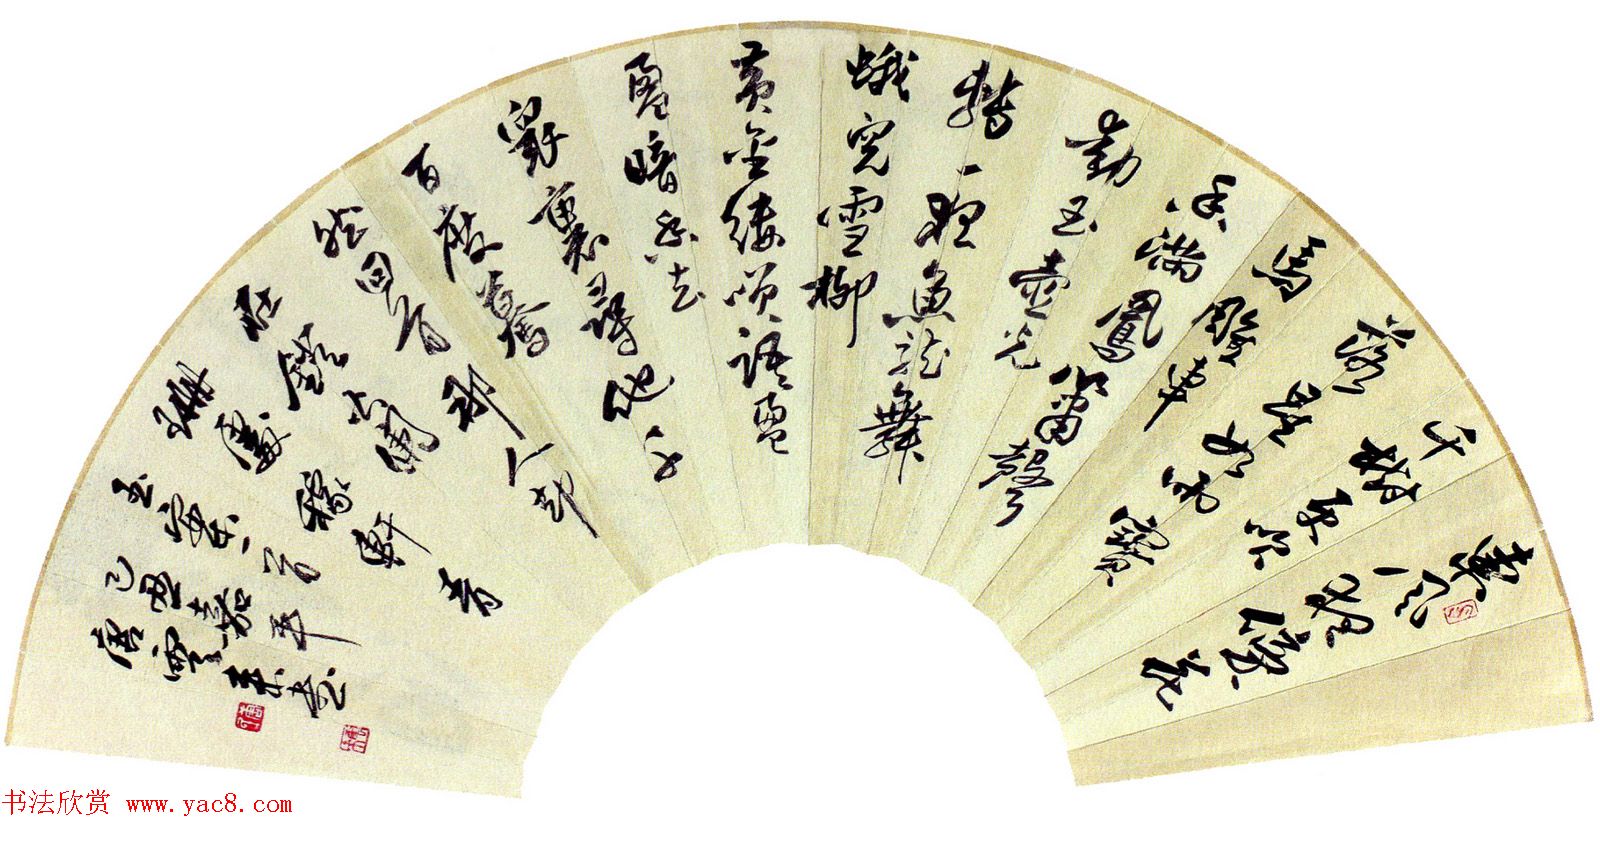 東風夜放花
千樹更吹
落星如雨寶
馬雕車
香滿鳳簫聲
動玉壺光
轉一夜魚龍舞
蛾兒雪柳
黃金縷笑語盈
盈暗香去
眾裏尋他千
百度驀
然回首那人卻
在燈火闌
珊處稼軒青
玉案一首
己丑嘉平
唐雲書
书法欣赏 www.yac8.com